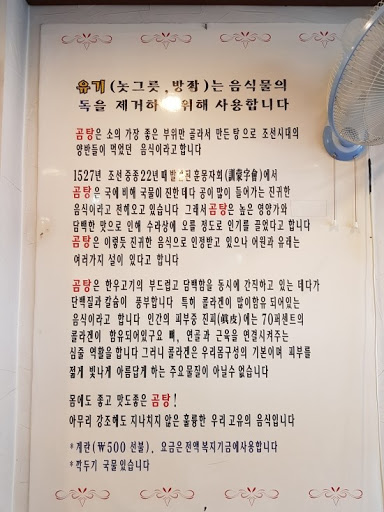 유기(놋그릇,방짜)는 음식물의
독을 제거하 위해 사용합니다
곰탕은 소의 가장 좋은 부위만 골라서 만든 탕으로 조선시대의
양반들이 먹었던 음식이라고합니다
1527년 조선 중종22년 때 훈몽자회(訓蒙字會)에서
곰탕은 국에 비해 국물이 진한데다 공이 많이 들어가는 진귀한
음식이라고 전해오고 있습니다 그래서 곰탕은 높은 영양가와
담백한 맛으로 인해 수라상에 오를 정도로 인기를 끌었다고 합니다
곰탕은 이렇듯 진귀한 음식으로 인정받고 있으나 어원과 유래는
여러가지 설이 있다고 합니다
곰탕은 한우고기의 부드럽고 담백함을 동시에 간직하고 있는 데다가
단백질과 칼슘이 풍부합니다 특히 콜라겐이 많이함유 되어있는
음식이라고 합니다 인간의 피부중 진피(眞皮)에는 70퍼센트의
콜라겐이 함유되어있구요 뼈, 연골과 근육을 연결시켜주는
심줄 역활을 합니다 그러니 콜라겐은 우리몸구성의 기본이며 피부를
젊게 빛나게 아름답게 하는 주요물질이 아닐수 없습니다
몸에도 좋고 맛도좋은 곰탕!
아무리 강조해도 지나치지 않은 훌륭한 우리 고유의 음식입니다
*계란(₩500 선불), 요금은전액 복지기금에사용합니다
*깍두기 국물있습니다